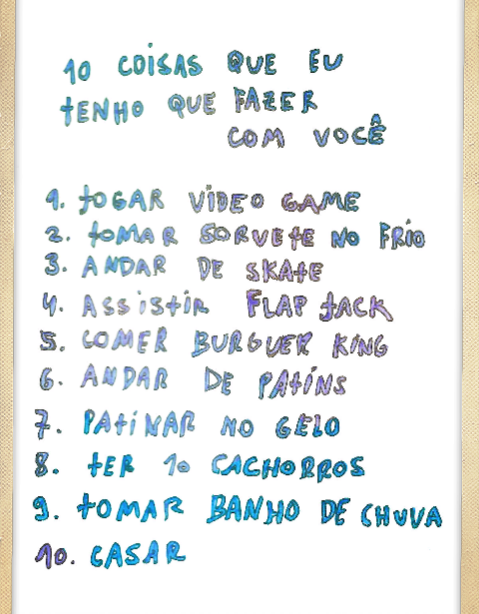 10 COISAS QUE EU
TENHO QUE FAZER
COM VOCÊ
1. JOGAR VIDEO GAME
2. TOMAR SORVETE NO FRIO
3. ANDAR DE SKATE
4. ASSISTIR FLAP JACK
5. COMER BURGUER KING
6. ANDAR DE PATINS
7. PATINAR NO GELO
8. TER 10 CACHORROS
9. TOMAR BANHO DE CHUVA
10. CASAR